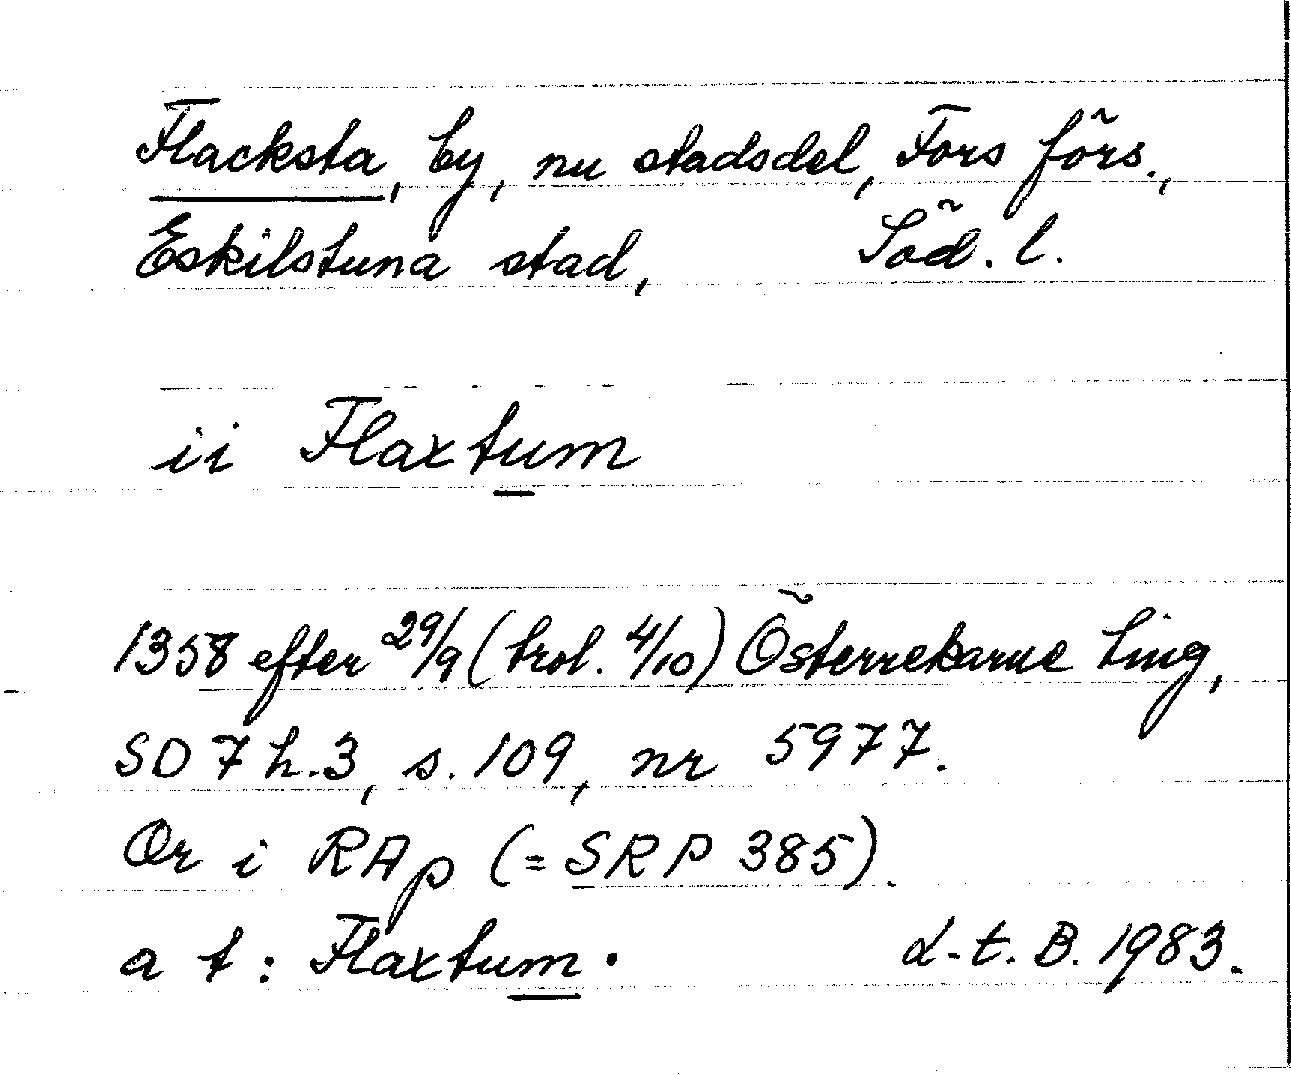 Flacksta, by, nu stadsdel, Fors förs.,
Eskilstuna stad, Söd. l.
ii Flaxtum
1358 efter 29/9 (trol. 4/10) Österrekarne ting,
SD 7 h.3, s. 109, nr 5977.
Or i RAp (= SRP 385).
a t: Flaxtum. d.t. B. 1983.